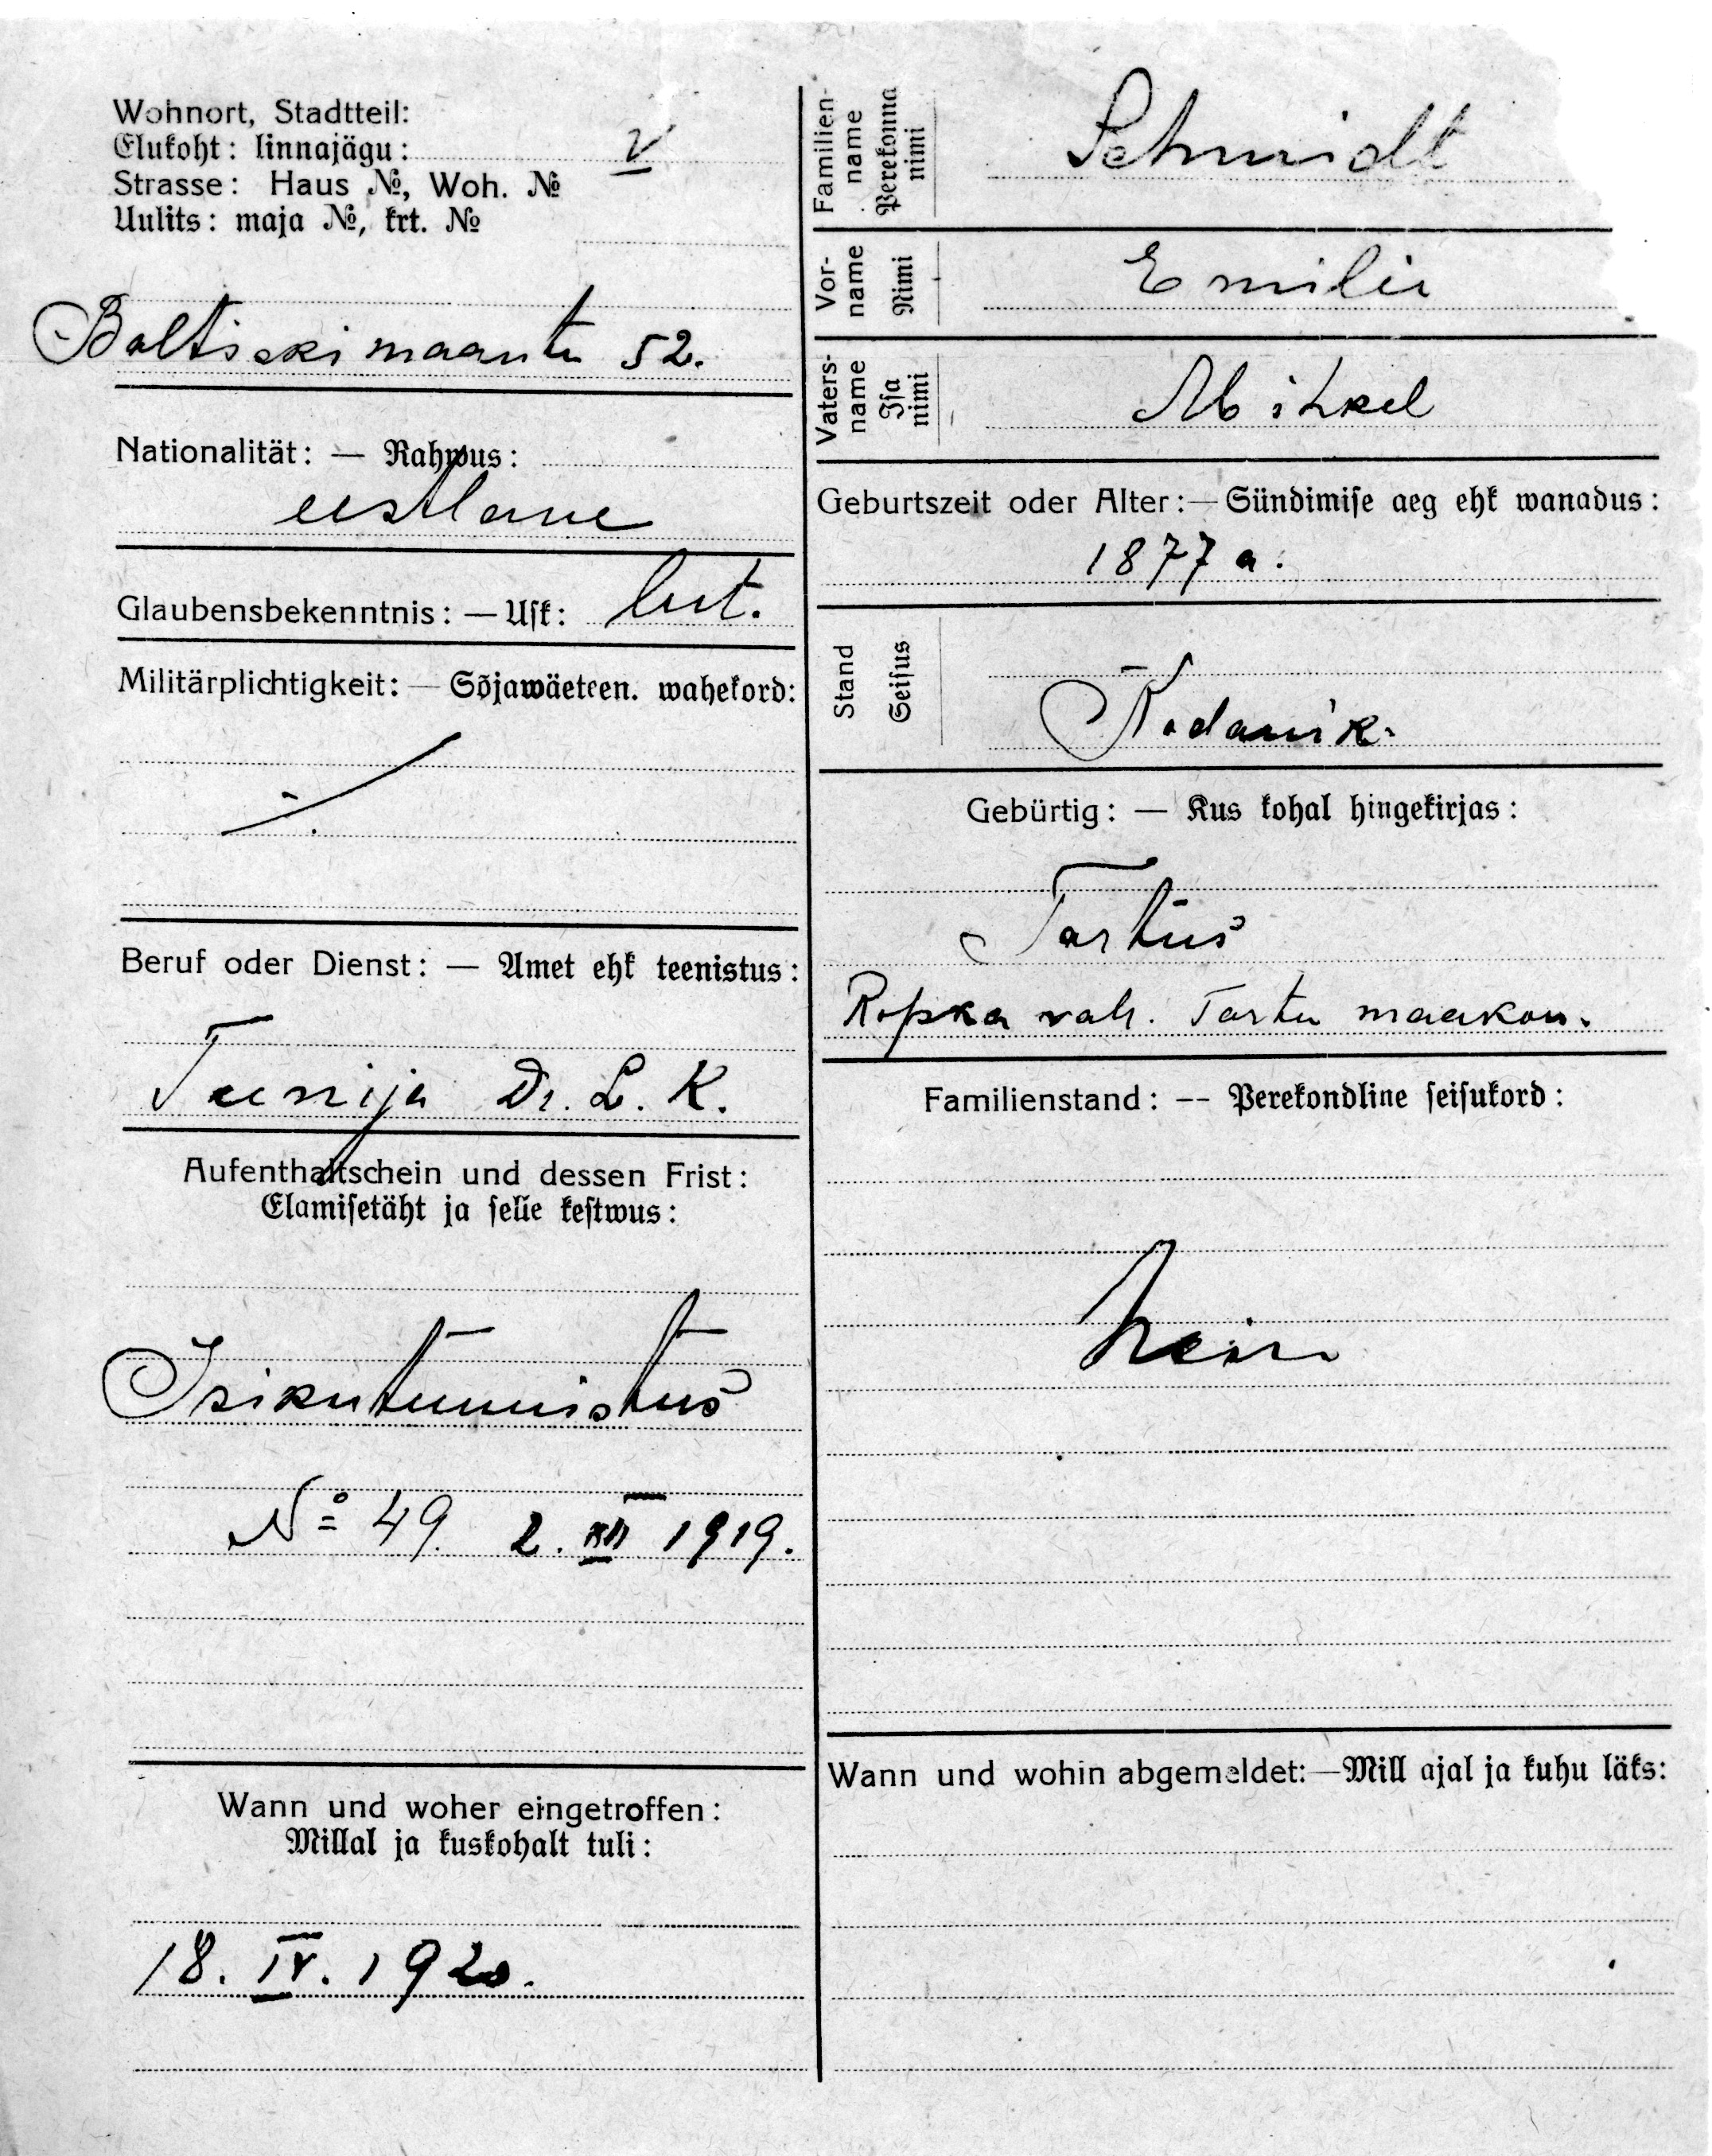 Wohnort, Stadtteil:
Elukoht: linnajägu: V
Strasse: Haus №, Woh. №
Uulits: maja №, krt. №
Baltiski maante 52.
Nationalität: — Rahwus:
eestlane
Glaubensbekenntnis: — Usk: lut.
Militärplichtigkeit: — Sõjawäeteen. wahekord:
Beruf oder Dienst: — Amet ehk teenistus:
Teenija Dr. L. K.
Aufenthaltschein und dessen Frist:
Elamisetäht ja selle kestwus:
Isikutunnistus
№ 49. 2. XII 1919.
Wann und woher eingetroffen:
Millal ja kuskohalt tuli:
18. IV. 1920.
Familien-
name
Perekonna
nimi
Schmidt
Vor-
name
Nimi
Emilie
Vaters-
name
Isa
nimi
Mihkel
Geburtszeit oder Alter: — Sündimise aeg ehk wanadus:
1877 a.
Stand
Seisus
Kodanik.
Gebürtig: — Kus kohal hingekirjas:
Tartus
Ropka vah. Tartu maakon.
Familienstand: -- Perekondline seisukord:
Wann und wohin abgemeldet: — Mill ajal ja kuhu läks: